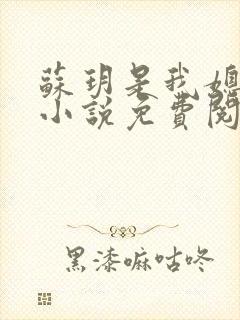 蘇玥是我媳
小說免費閱
黑漆嘛咕咚